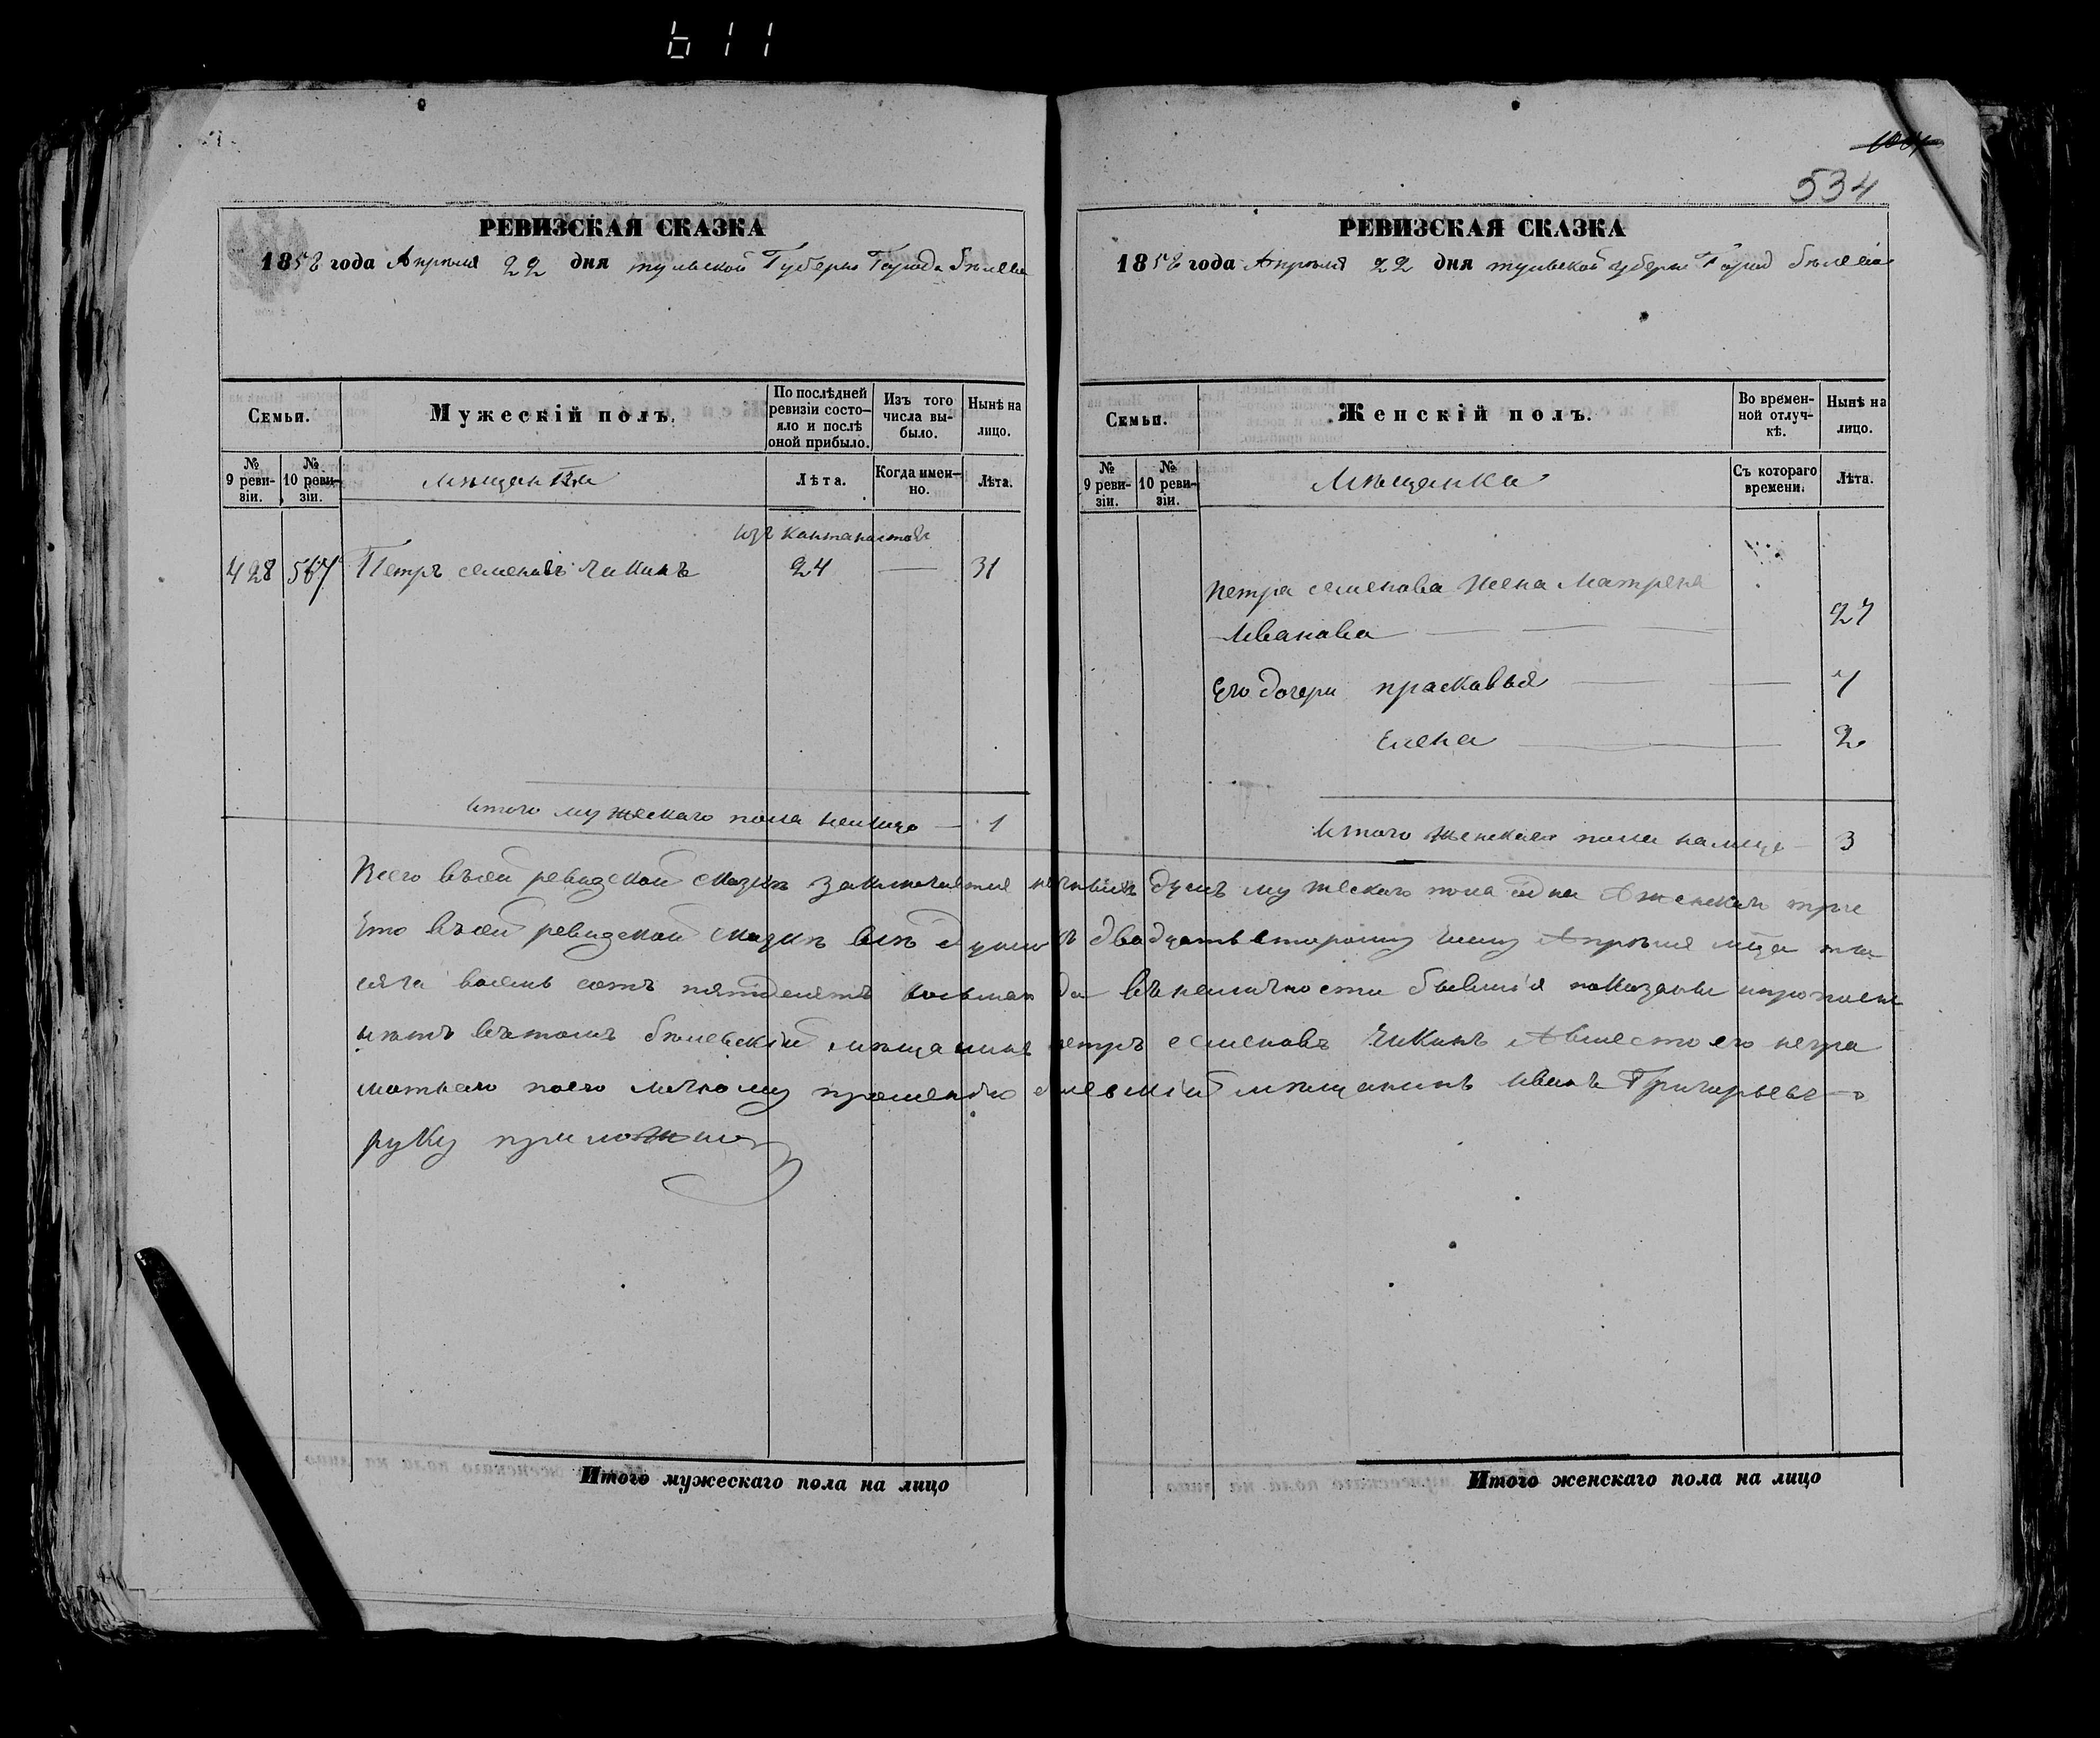 611
534
РЕВИЗСКАЯ СКАЗКА
1858 года Апреля 22 дня тульской Губерн Города белева
Семьи.
Мужескій полъ.
По послѣдней ревизіи состо-яло и послѣ оной прибыло.
Изъ того числа вы-было.
Нынѣ на лицо.
№ 9 реви-зіи.
№ 10 реви-зіи.
Лѣта.
Когда имен-но.
Лѣта.
изъ кантанистовъ
428 567 Петръ семеновъ Чикинъ 24 — 31
Итого мужескаго пола налицо — 1
РЕВИЗСКАЯ СКАЗКА
1858 года Апреля 22 дня тульской губерни Город белева
Семьи.
Женскій полъ.
Во времен-ной отлуч-кѣ.
Нынѣ на лицо.
№ 9 реви-зіи.
№ 10 реви-зіи.
Мѣщанка
Съ котораго времени.
Лѣта.
Петра семенова Жена Матрена
Иванова 27
Его дочери прасковья 7
Елена 2
Итого женскаго пола налицо 3
Всего въсей ревизской сказке заключается душъ мужескаго пола одна Аженскаго три
Что въсей ревизской сказке все душы к двадцать второму числу Апреля мца ты
сяча восемь сотъ пятдесятъ восьмаго да въналичности бывшія показаны
въ томъ белевский мещанинъ петръ семеновъ Чикинъ Авместо его негра
мотнаго поего личному прошенію белевский мещанинъ иванъ Григорьевъ
руку приложилъ
Итого мужескаго пола на лицо
Итого женскаго пола на лицо